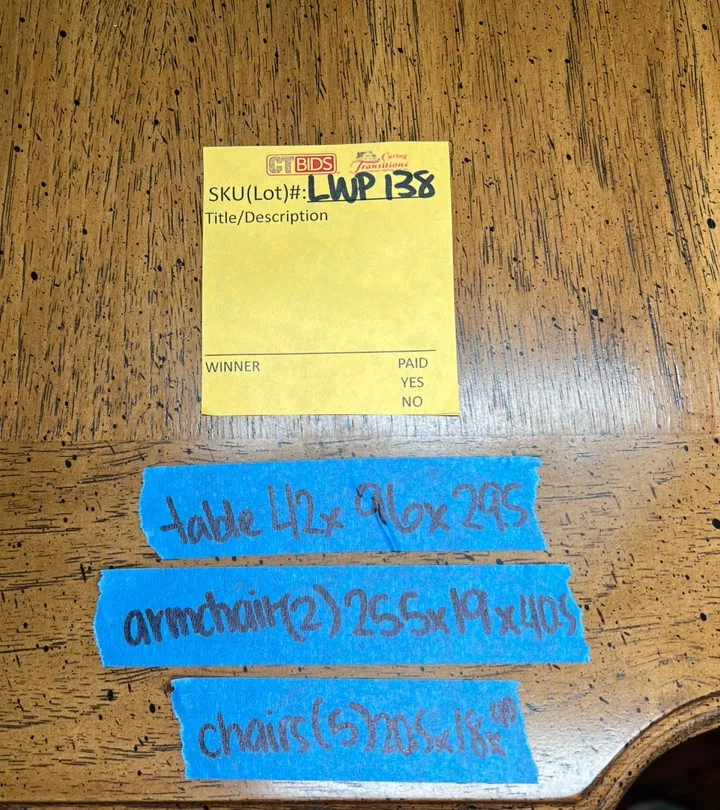 CTBIDS Caring Transitions
SKU(Lot)#: LWP 138
Title/Description
WINNER PAID
YES
NO
table 42x 96x295
armchair(2) 255x19x405
chairs(5)20.5x18x